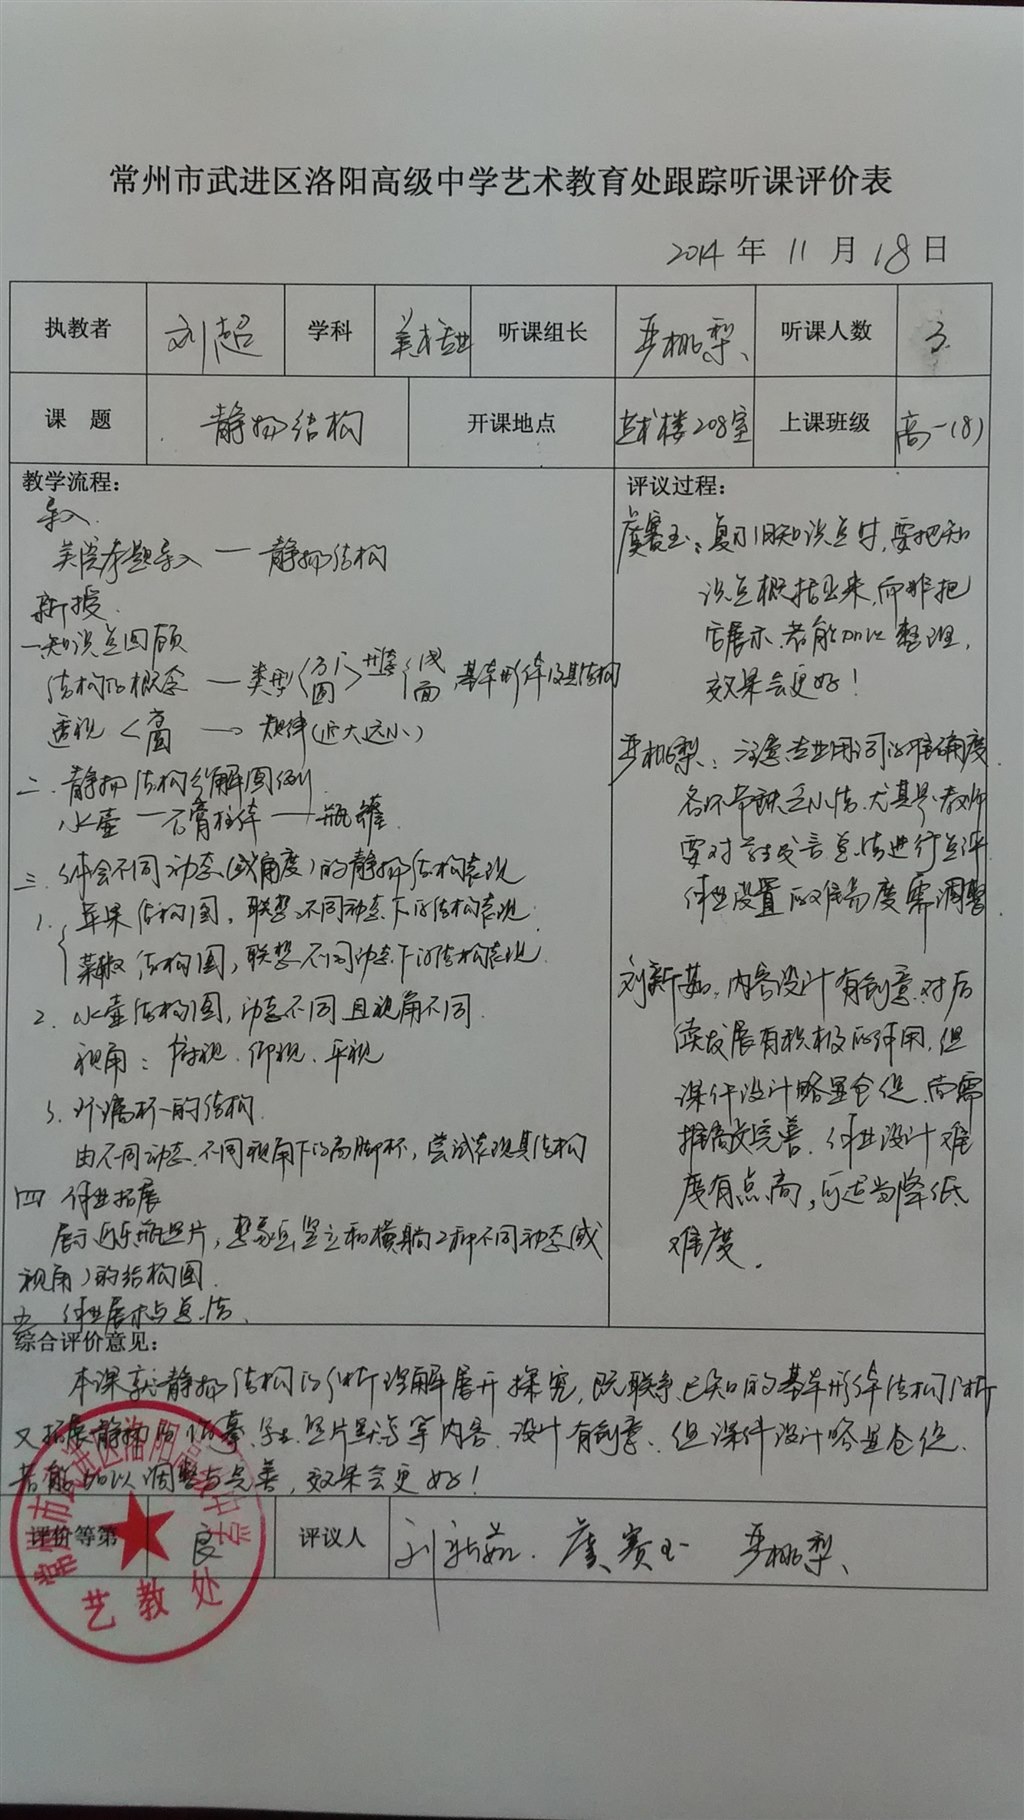 常州市武进区洛阳高级中学艺术教育处跟踪听课评价表
2014 年 11 月 18 日
执教者 刘超 学科 美术专业 听课组长 严桃梨 听课人数 3
课 题 静物结构 开课地点 艺术楼208室 上课班级 高一(8)
教学流程:
导入
美院考题导入 — 静物结构
新授
一.知识点回顾
结构的概念 — 类型 方 圆 形态 线 面 基本形体及其结构
透视 < 方 圆 → 规律(近大远小)
二.静物结构分解图例
水壶 — 石膏柱体 — 瓶罐
三.体会不同动态(或角度)的静物结构表现
1. 苹果结构图,联想不同动态下的结构表现
菜椒结构图,联想不同动态下的结构表现
2. 水壶结构图,动态不同且视角不同
视角:俯视.仰视.平视
3. 玻璃杯的结构
由不同动态.不同视角下的高脚杯,尝试表现其结构
四 作业拓展
展示可乐瓶照片,想象画竖立和横躺2种不同动态(或
视角)的结构图
五 作业展示与总结
评议过程:
虞赛玉:复习旧知识点时,要把知
识点概括出来,而非把
它展示.若能 整理,
效果会更好!
严桃梨:注意专业用词的准确度
各环节缺乏小结.尤其是教师
要对学生发言总结进行点评
作业设置的难易度需调整
刘新茹:内容设计有创意.对后
续发展有积极的作用.但
课件设计略显仓促.尚需
推敲完善.作业设计难
度有点高,可适当降低
难度.
综合评价意见:
本课就静物结构的分析理解展开探究,既联系已知的基本形体结构分析
又拓展静物的临摹.写生.照片默写等内容.设计有创意.但课件设计略显仓促.
若能加以调整与完善,效果会更好!
评价等第 良 评议人 刘新茹. 虞赛玉 严桃梨
常州市武进区洛阳高级中学
艺教处